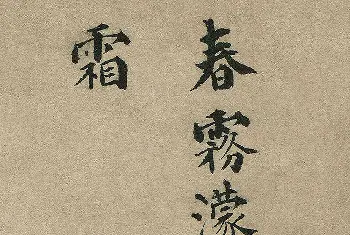 春霧濛
霜